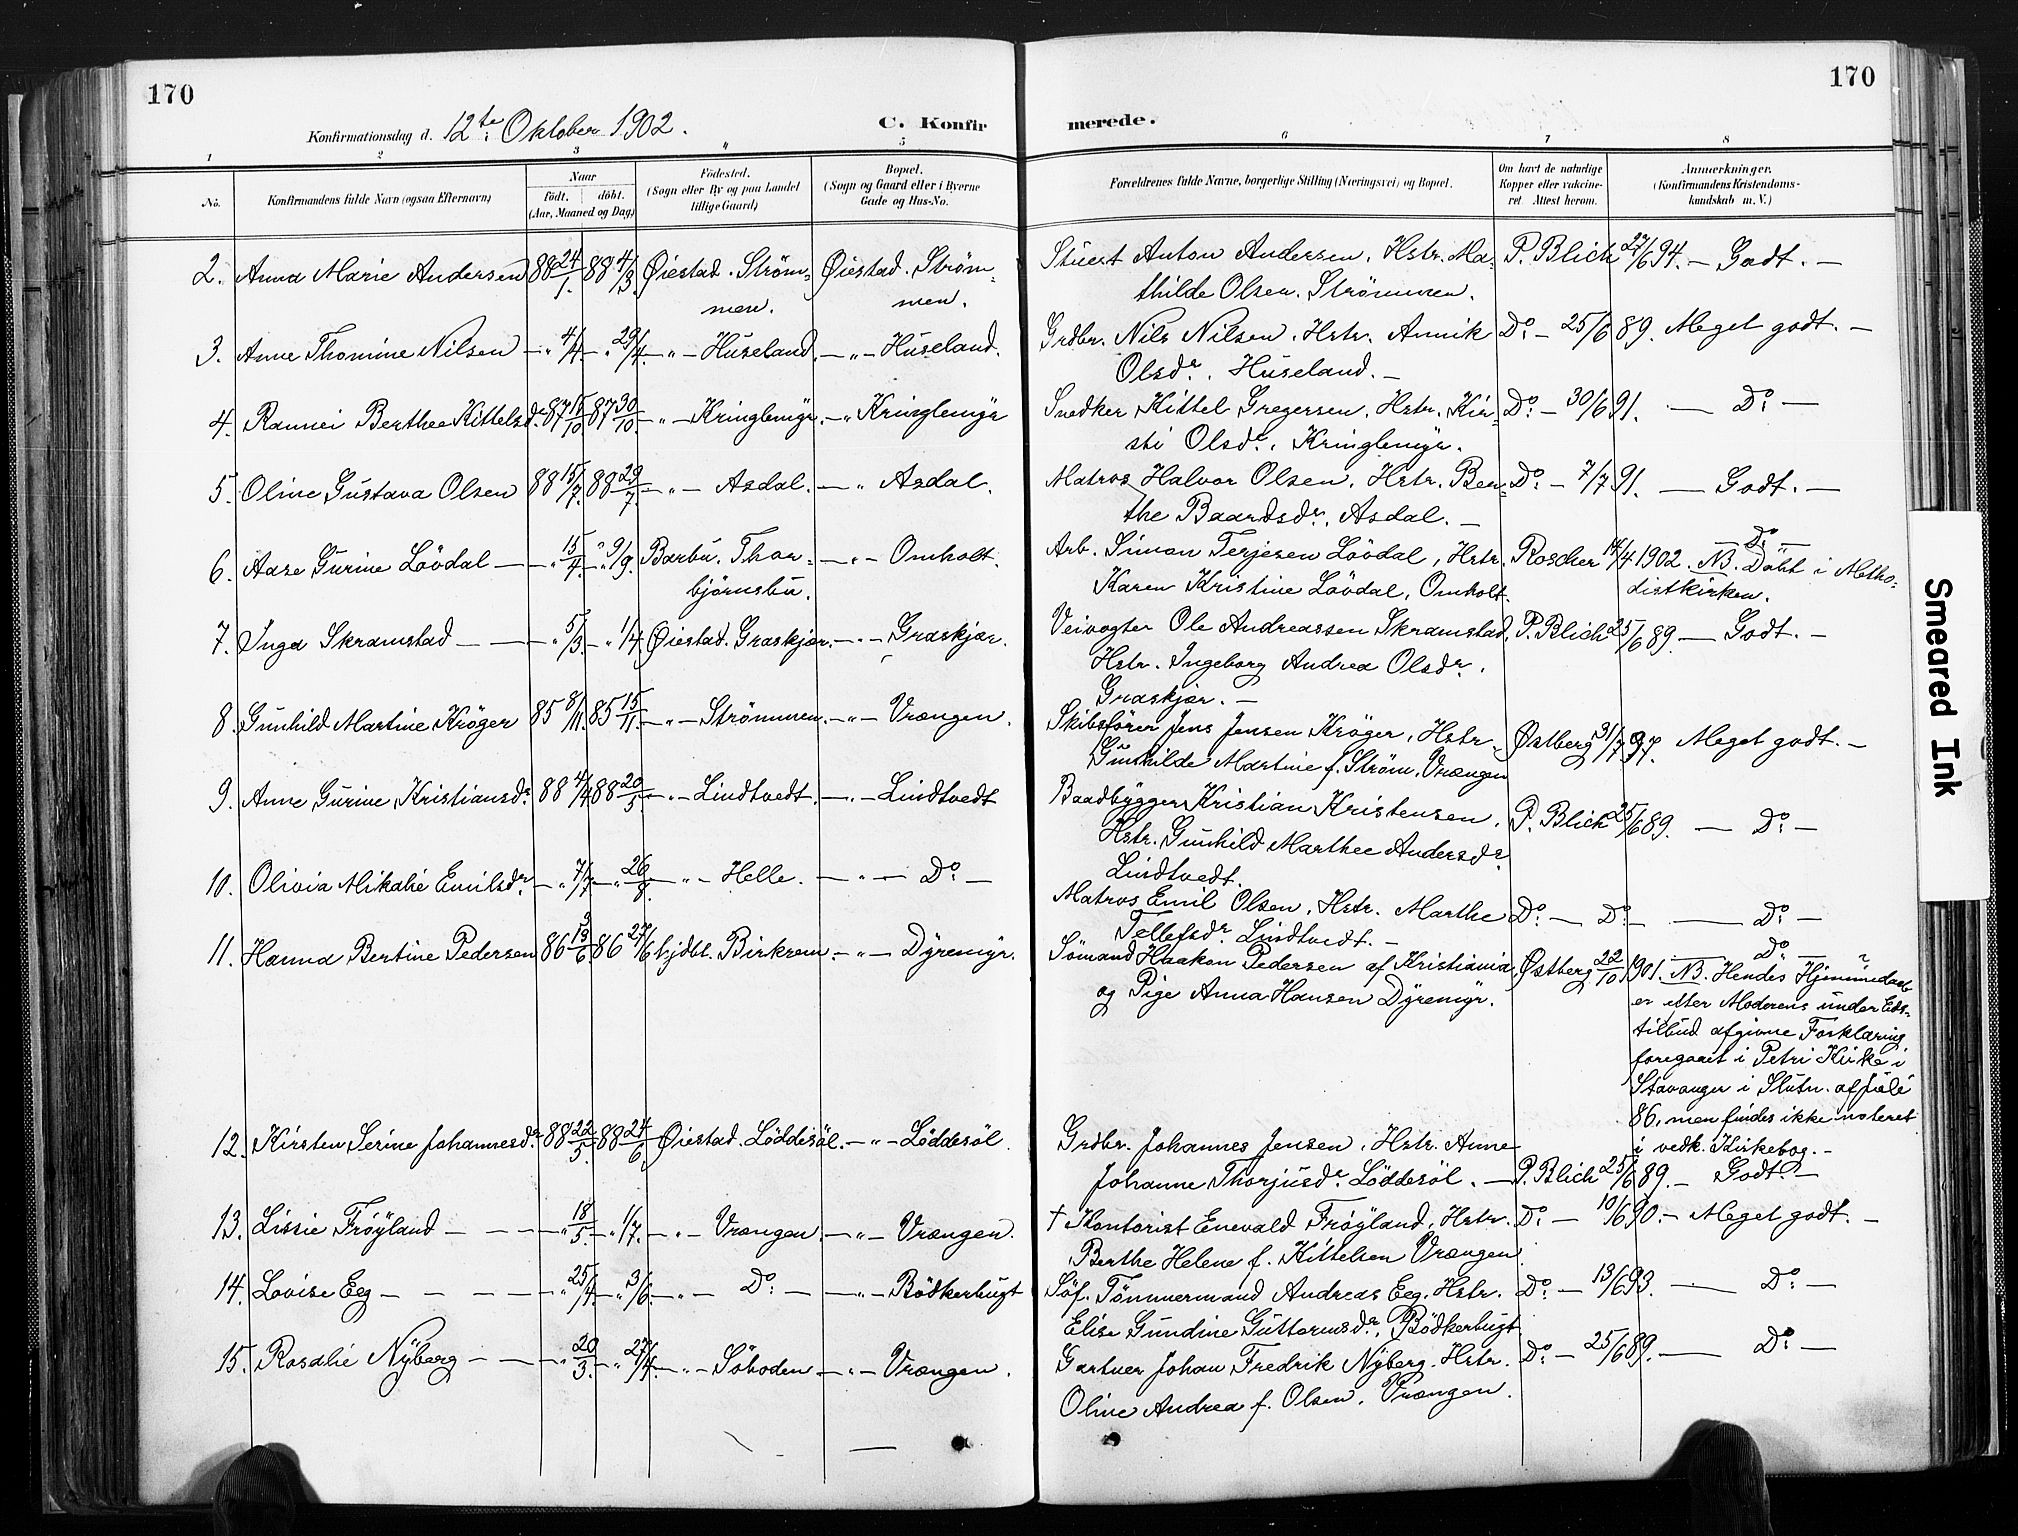 170
170
Konfirmationsdag d. 12te Oktober 1902.
C. Konfir
merede.
1 2 3 " 5 6 7 8
No.
Konfirmandens fulde Navn (ogsaa Efternavn)
Naar
født. døbt.
(Aar, Maaned og Dag)
Födested.
(Sogn eller By og paa Landet
tillige Gaard)
Bopæl.
(Sogn og Gaard eller i Byerne
Gade og Hus-No.
Forældrenes fulde Navne, borgerlige Stilling (Næringsvei) og Bopæl.
Om havt de naturlige
Kopper eller vakcine-
ret. Attest herom.
Anmærkninger.
(Konfirmandens Kristendoms-
kundskab m. V.)
2. Anna Marie Andersen 88 24/1. 88 4/3. Øiestad. Strøm- Øiestad. Strøm- Stuert Anton Andersen, Hstr. Ma- P. Blich 27/6 94. — Godt. —
men. men. thilde Olsen. Strømmen.
3. Anne Thomine Nilsen — " 4/4 — " 29/4 — " — Huseland. — " — Huseland. Grdbr. Nils Nilsen. Hstr. Annik Do. — 25/6 89. Meget godt. —
Olsdr. Huseland. —
4. Rannei Berthee Kittelsd. 87 15/10 87 30/10 — " — Kringlemyr. — " Kringlemyr Snedker Kittel Gregersen. Hstr. Kir- Do. — 30/6 91. — Do. —
sti Olsdr. Kringlemyr.
5. Oline Gustava Olsen 88 15/7. 88 29/7 — " — Asdal. — " Asdal. Matros Halvor Olsen. Hstr. Ben- Do. — 7/7 91. — Godt. —
the Baardsdr. Asdal. —
6. Aase Gurine Løvdal — " 15/4 — " 9/9. Barbu. Thor- — " — Omholt. Arb. Simon Terjesen Løvdal, Hstr. Roscher 14/4 1902. — Do. — NB. Døbt i Metho-
bjørnsbu. Karen Kristine Løvdal, Omholt. distkirken.
7. Inga Skramstad — — " 5/3 — " 1/4 Øiestad. Graskjær. — " — Graskjær. Veivogter Ole Andreassen Skramstad, P. Blich 25/6 89. — Godt. —
Hstr. Ingeborg Andrea Olsdr.
Graskjær. —
8. Gunhild Martine Krøger 85 8/11. 85 15/11. — " — Strømmen. — " — Vrængen. Skibsfører Jens Jensen Krøger, Hstr. Østberg 31/7 97. Meget godt. —
Gunhilde Martine f. Strøm, Vrængen
9. Anne Gurine Kristiansdr. 88 4/4 88 20/5 — " — Lindtvedt. — " — Lindtvedt Baadbygger Kristian Kristensen, P. Blich 25/6 89. — Do. —
Hstr. Gunhild Marthee Andersdr.
Lindtvedt.
10. Olivia Mikalie Emilsdr. — " 7/7 — " 26/8. — " — Helle. — " — Do. — Matros Emil Olsen, Hstr. Marthe Do. — Do. — — Do. —
Tellefsdr. Lindtvedt. —
11. Hanna Bertine Pedersen 86 13/6 86 27/6 hjdbt. Birkrem. — " — Dyremyr. Sømand Haakon Pedersen af Kristiania Østberg 22/10 1901. — Do. — NB. Hendes Hjemmedaab
og Pige Anna Hansen Dyremyr. er efter Moderens under Eds-
tilbud afgivne Forklaring
foregaaet i Petri Kirke i
Stavanger i Slutn. af Juli
86, men findes ikke noteret
i vedk. Kirkebog. —
12. Kirsten Serine Johannesdr. 88 22/5. 88 24/6 Øiestad. Løddesøl. — " — Løddesøl. Grdbr. Johannes Jensen, Hstr. Anne
Johanne Thorjusdr. Løddesøl. — P. Blich 25/6 89. — Godt. —
13. Lissie Frøyland — — — " 18/5. — " 1/7. — " — Vrængen. — " — Vrængen. † Kontorist Enevald Frøyland, Hstr. Do. — 10/6 90. — Meget godt. —
Berthe Helene f. Kittelsen Vrængen.
14. Lovise Eeg — — — " 25/4. — " 3/6. — " — Do. — — " — Bödkerbugt Søf. Tømmermand Andreas Eeg. Hstr. Do. — 13/6 93. — Do. —
Elise Gundine Guttormsdr. Bødkerbugt
15. Rosalie Nyberg — — — " 20/3. — " 27/4. — " — Søboden — " — Vrængen. Gartner Johan Fredrik Nyberg. Hstr. Do. — 25/6 89. — Do. —
Oline Andrea f. Olsen, Vrængen.
Smeared Ink